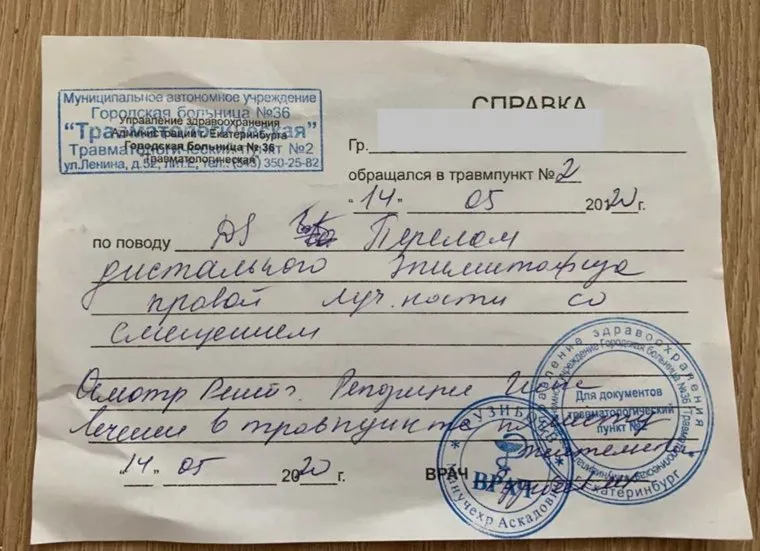 Муниципальное автономное учреждение
Городская больница №36
Управление здравоохранения
"Травматологическая"
Администрации г. Екатеринбурга
Травматологический пункт №2
Городская больница № 36
ул.Ленина, д.52, тел.: (343) 350-25-82
Травматологическая"
СПРАВКА
Гр.
обращался в травмпункт № 2
"14" 05 2020 г.
по поводу DS Перелом
дистального
правой луч. кости со
смещением
Осмотр Репозиция
лечение в травпункте по месту
жительства
"14" 05 2020 г.
ВРАЧ
ВРАЧ
Манучехр Аскадович
Для документов
травматологический
пункт №2
Управление здравоохранения
Городская больница №36
Екатеринбург